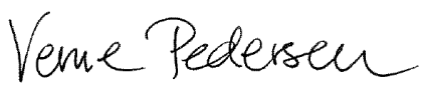 Verne Pedersen